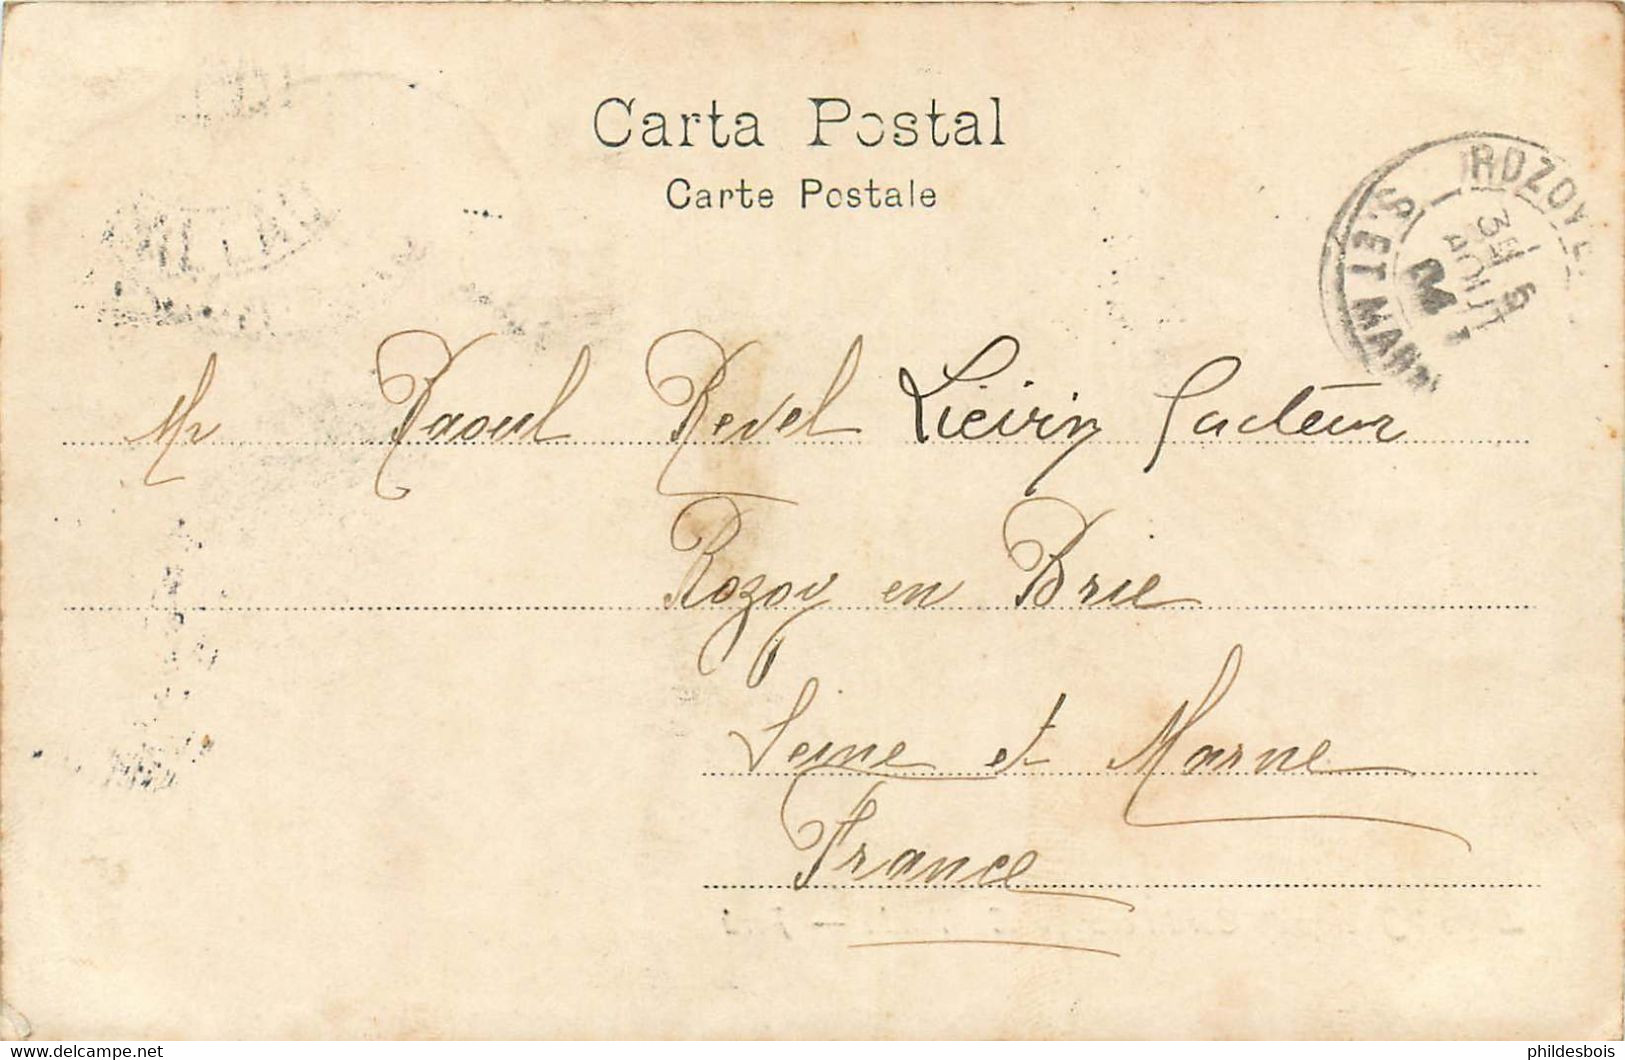 Carta Postal
Carte Postale
ROZOY E
S. ET MARN
3E 5
AOUT
04
Mr Raoul Revel Liévin facteur
Rozoy en Brie
Seine et Marne
France
www.delcampe.net
phildesbois